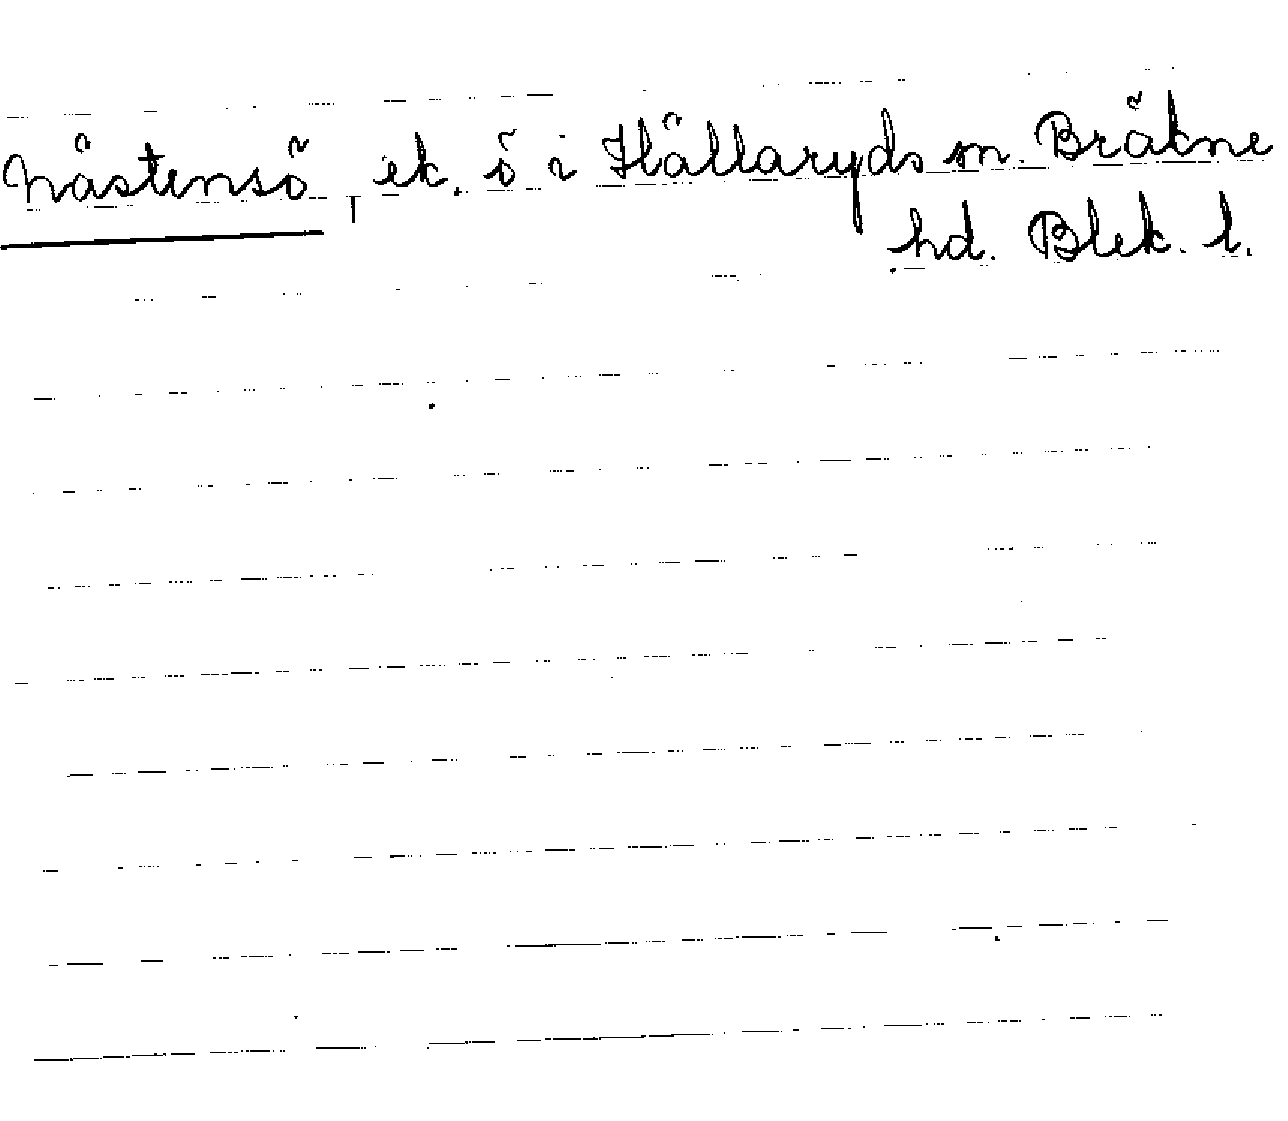 Nästensö, ek. ö i Hällaryds sn. Bräkne
hd. Blek. l.